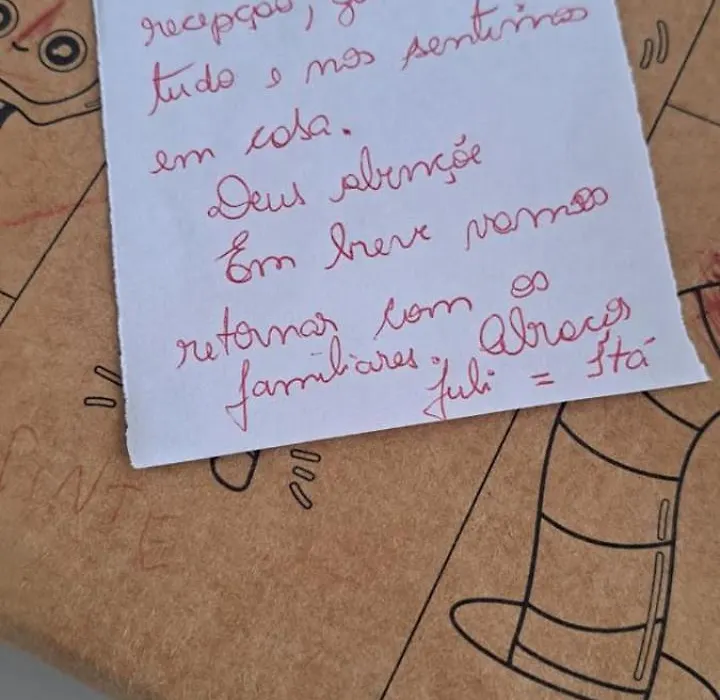 recepção,
tudo e nos sentimos
em casa.
Deus abençõe
Em breve vamos
retornar com os
familiares. Abraços
Juli = Itá
INTE